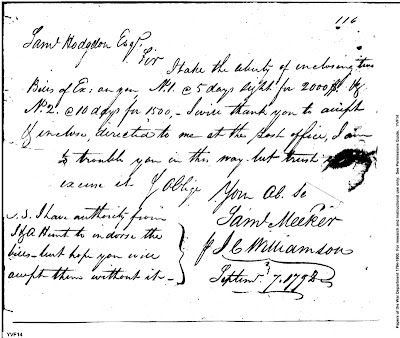 116
Saml Hodgdon Esqr.
Sir
I take the liberty of inclosing two
Bills of Ex: on you No1. @ 5 days sight for 2000
No2. @ 10 days for 1500,- I will thank you to accept
& inclose, directed to me at the post office, I am
to trouble you in this way but trust
excuse it. & Oblige
Your Ob. St
Saml. Meeker
p J. C. Williamson
Septemr. 7. 1792
P.S. I have authority from
J & A Hunt to endorse the
bills - but hope you will
accept them without it -
YVF14
Papers of the War Department 1784-1800. For research and instructional use only. See Permissions Guide. YVF14